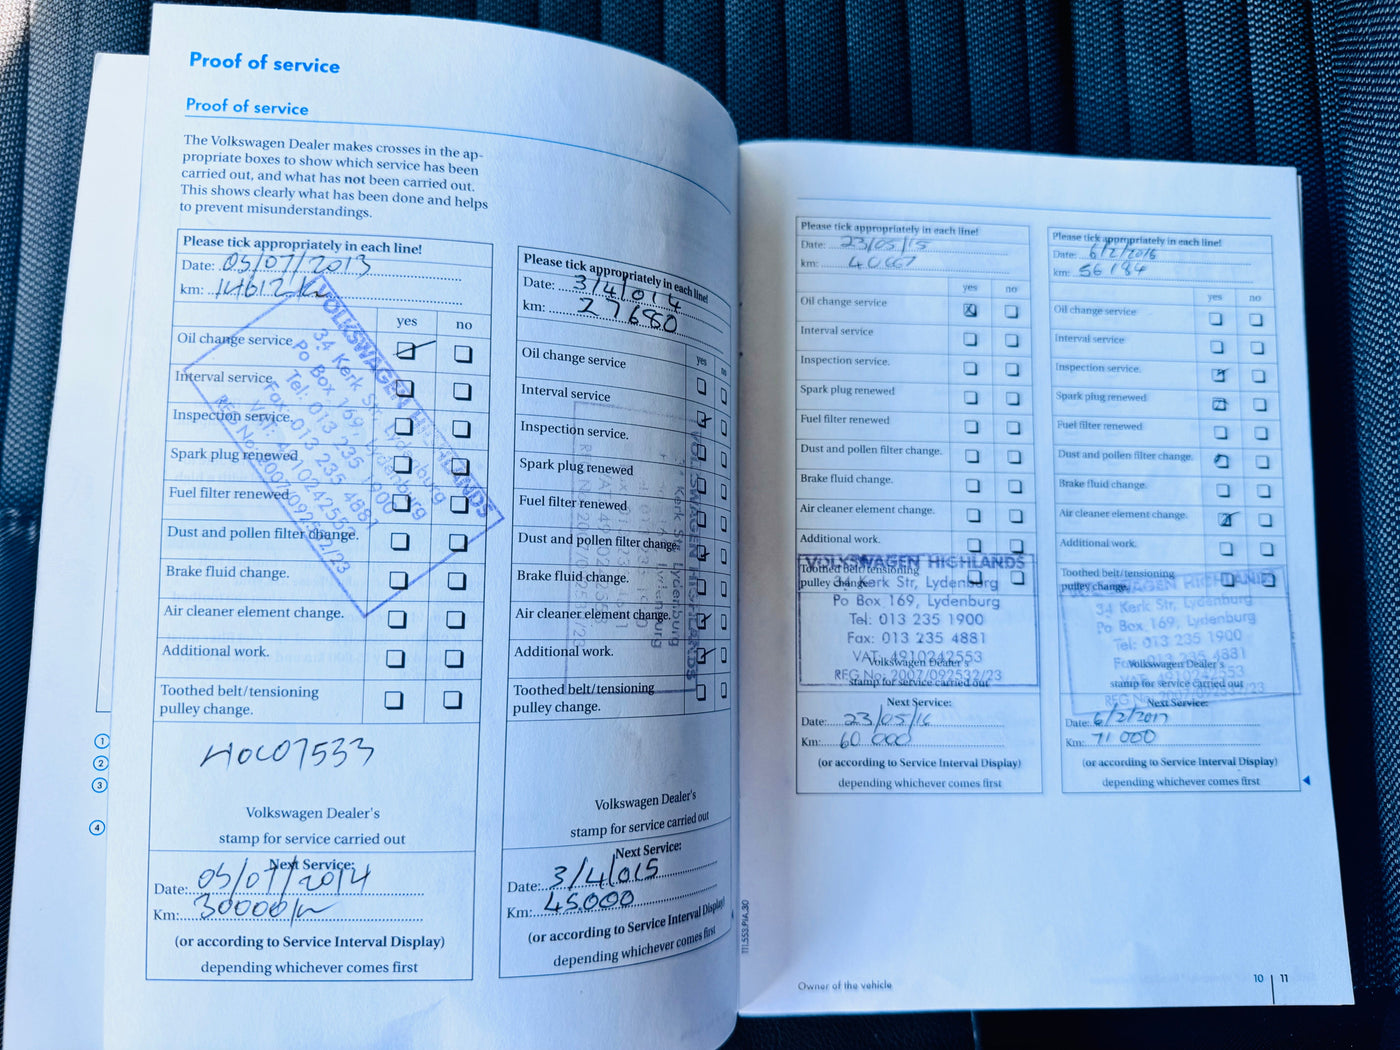 Proof of service
Proof of service
The Volkswagen Dealer makes crosses in the ap-
propriate boxes to show which service has been
carried out, and what has not been carried out.
This shows clearly what has been done and helps
to prevent misunderstandings.
Please tick appropriately in each line!
Date: 05/07/2013
km: 14612 km
yes no
Oil change service
Interval service
Inspection service.
Spark plug renewed
Fuel filter renewed
Dust and pollen filter change.
Brake fluid change.
Air cleaner element change.
Additional work.
Toothed belt/tensioning
pulley change.
VOLKSWAGEN HIGHLANDS
34 Kerk Str, Lydenburg
Po Box 169, Lydenburg
Tel: 013 235 1900
Fax: 013 235 4881
VAT: 4910242553
REG No: 2007/092532/23
Volkswagen Dealer's
stamp for service carried out
Next Service:
Date: 05/07/2014
Km: 30000km
(or according to Service Interval Display)
depending whichever comes first
Please tick appropriately in each line!
Date: 3/4/014
km: 29680
yes no
Oil change service
Interval service
Inspection service.
Spark plug renewed
Fuel filter renewed
Dust and pollen filter change
Brake fluid change.
Air cleaner element change.
Additional work.
Toothed belt/tensioning
pulley change.
VOLKSWAGEN HIGHLANDS
34 Kerk Str, Lydenburg
Volkswagen Dealer's
stamp for service carried out
Next Service:
Date: 3/4/015
Km: 45.000
(or according to Service Interval Display)
depending whichever comes first
Please tick appropriately in each line!
Date: 23/05/15
km:
yes no
Oil change service
Interval service
Inspection service.
Spark plug renewed
Fuel filter renewed
Dust and pollen filter change.
Brake fluid change.
Air cleaner element change.
Additional work.
Toothed belt/tensioning
pulley change.
VOLKSWAGEN HIGHLANDS
34 Kerk Str, Lydenburg
Po Box 169, Lydenburg
Tel: 013 235 1900
Fax: 013 235 4881
VAT: 4910242553
REG No: 2007/092532/23
Volkswagen Dealer's
stamp for service carried out
Next Service:
Date: 23/05/16
Km: 60 000
(or according to Service Interval Display)
depending whichever comes first
Please tick appropriately in each line!
Date: 6/2/2016
km: 56184
yes no
Oil change service
Interval service
Inspection service.
Spark plug renewed
Fuel filter renewed
Dust and pollen filter change.
Brake fluid change.
Air cleaner element change.
Additional work.
Toothed belt/tensioning
pulley change.
VOLKSWAGEN HIGHLANDS
34 Kerk Str, Lydenburg
Po Box 169, Lydenburg
Tel: 013 235 1900
Fax: 013 235 4881
VAT: 4910242553
REG No: 2007/092532/23
Volkswagen Dealer's
stamp for service carried out
Next Service:
Date: 6/2/2017
Km: 71 000
(or according to Service Interval Display)
depending whichever comes first
1
2
3
4
Owner of the vehicle
10 11